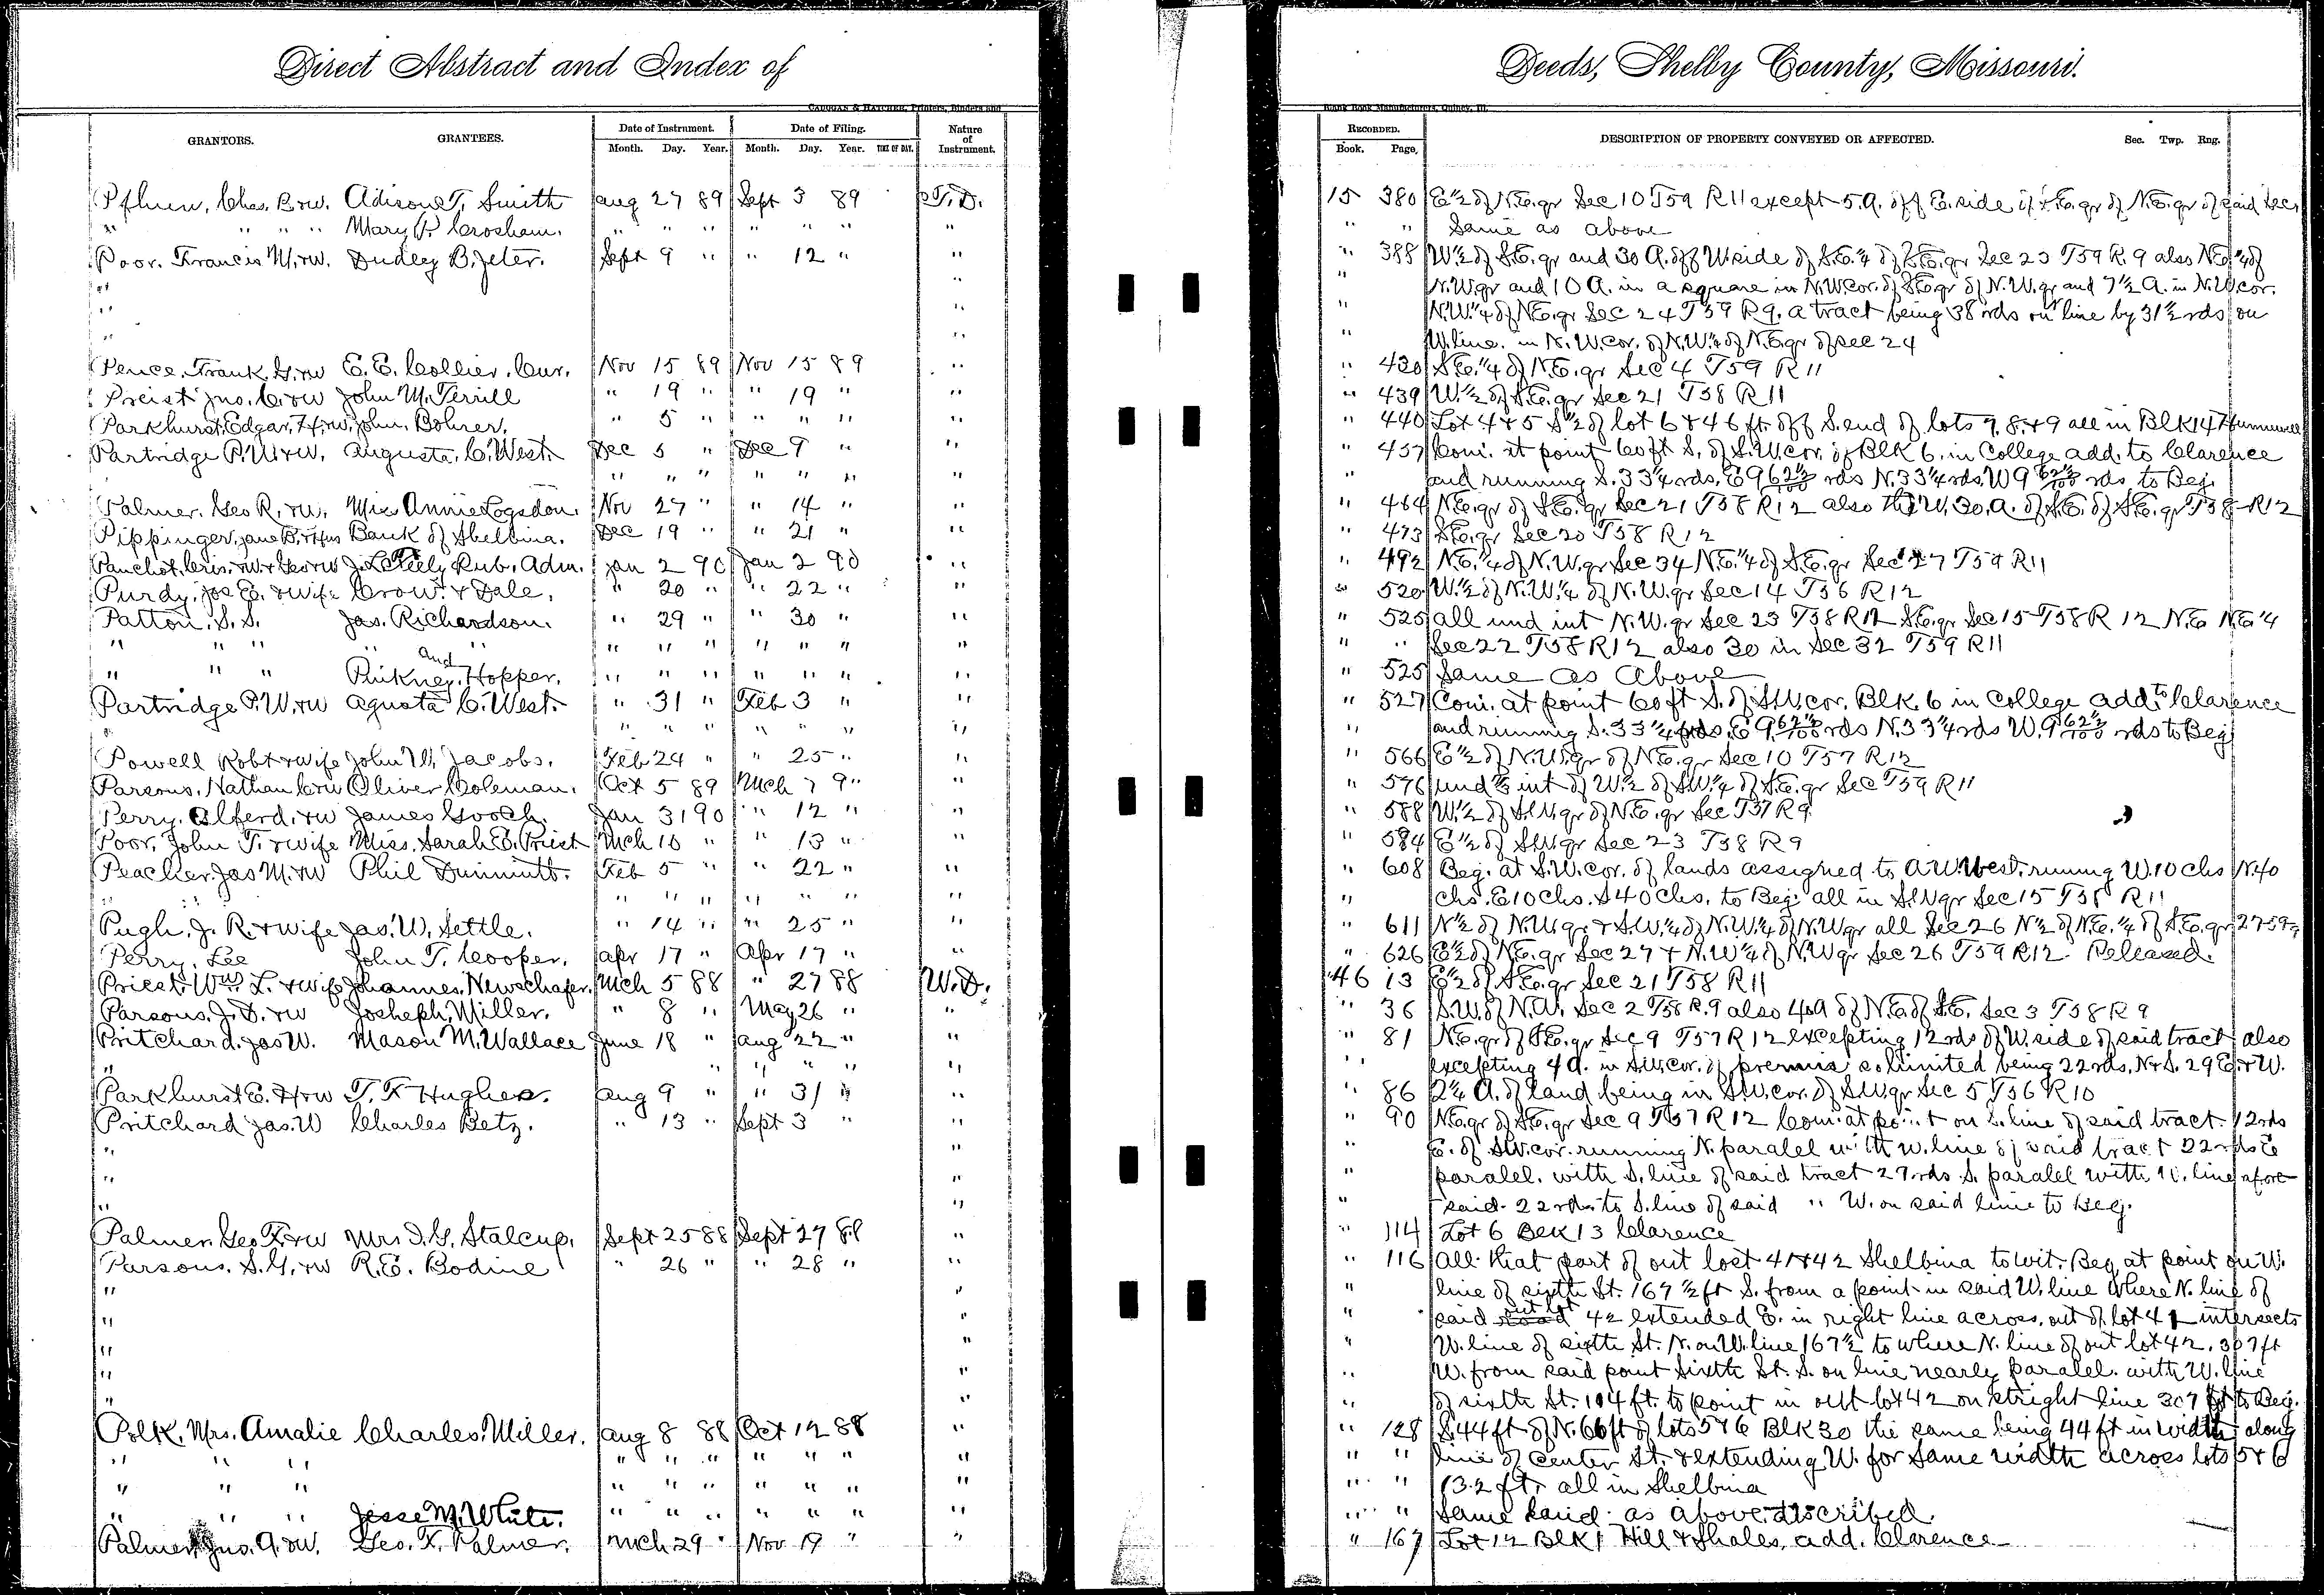 Direct Abstract and Index of Deeds, Shelby County, Missouri.
CADOGAN & HATCHER, Printers, Binders and Blank Book Manufacturers, Quincy, Ill.
GRANTORS. GRANTEES. Date of Instrument. Date of Filing. Nature of Instrument. RECORDED. DESCRIPTION OF PROPERTY CONVEYED OR AFFECTED. Sec. Twp. Rng.
Month. Day. Year. Month. Day. Year. TIME OF DAY. Book. Page.
Chas. B. & w. Adison T. Smith Aug 27 89 Sept 3 89 T.D. 15 380 E ½ of N.E. qr Sec 10 T59 R11 except 5.A. off E. side of N.E. qr of said Sec
" " " " Mary P. Crosham. " " " " " " " " " Same as above
Poor. Francis M. & w. Dudley B. Jeter. Sept 9 " " 12 " " " 388 W ½ of S.E. qr and 30 A. off W. side of S.E. ¼ of S.E. qr Sec 23 T59 R.9 also N.E. ¼ of
" " " N.W. qr and 10 A. in a square in N.W. cor. of S.E. qr of N.W. qr and 7 ½ A. in N.W. cor.
" " " N.W. ¼ of N.E. qr Sec 24 T59 R9. a tract being 38 rds on line by 31 ½ rds on
" " " W. line. in N.W. cor. of N.W. ¼ of N.E. qr of sec 24
Pence, Frank G. & w E. E. Collier, Cur. Nov 15 89 Nov 15 89 " " 420 S.E. ¼ of N.E. qr Sec 4 T59 R11
Preist Jno. C. & w John M. Terrill " 19 " " 19 " " " 439 W. ½ of S.E. qr Sec 21 T58 R11
Parkhurst, Edgar, H. & w. John. Bohrer. " 5 " " " " " " 440 Lot 4 & 5 S ½ of lot 6 & 46 ft. off S. end of lots 7, 8, & 9 all in Blk 14 Hunnewell
Partridge P. W. & w. Augusta. C. West. Dec 5 " Dec 9 " " " 457 Com. at point 60 ft S. of S.W. cor. of Blk 6. in College add. to Clarence
" " " " " " " " and running S. 33 ¼ rds. E 9 62½/100 rds N. 33 ¼ rds. W 9 62½/100 rds. to Beg.
Palmer. Geo R. & w. Miss Annie Logsdon. Nov 27 " " 14 " " " 464 N.E. qr of S.E. qr Sec 21 T58 R12 also the W. 30. A. of S.E. of S.E. qr T58 R12
Pippinger, Jane B. & Hus Bank of Shelbina. Dec 19 " " 21 " " " 473 S.E. qr Sec 20 T58 R12
Panchot, Cris. & w & Geo & w J. L. Cleely Pub. Adm. Jan 2 90 Jan 2 90 " " 492 N.E. ¼ of N.W. qr Sec 34 N.E. ¼ of S.E. qr Sec 27 T59 R11
Purdy, Joe E. & wife Crow & Dale. " 20 " " 22 " " " 520 W. ½ of N.W. ¼ of N.W. qr Sec 14 T56 R12
Patton. S. S. Jas. Richardson. " 29 " " 30 " " " 525 all und int N.W. qr Sec 23 T58 R12 S.E. qr Sec 15 T58 R 12 N.E N.E ¼
" " " " " " " " " " " " " Sec 22 T58 R12 also 30 in Sec 32 T59 R11
" " " And Pinkney. Hopper. " " " " " " " " 525 Same as Above
Partridge P. W. & w Agusta C. West. " 31 " Feb 3 " " " 527 Com. at point 60 ft S. of S.W. cor. Blk. 6 in College add. to Clarence
" " " " " " " " " and running S. 33 ¼ rds. E 9 62½/100 rds N. 33 ¼ rds W. 9 62½/100 rds to Beg
Powell Robt & wife John W. Jacobs. Feb 24 " " 25 " " " 566 E ½ of N.W. qr of N.E. qr Sec 10 T57 R12
Parsons. Nathan C & w Oliver Coleman. Oct 5 89 Mch 7 9" " " 576 und int of W. ½ of S.W. ¼ of S.E. qr Sec T59 R11
Perry. Alferd. & w James Gooch. Jan 31 90 " 12 " " " 588 W. ½ of S.W. qr of N.E. qr Sec T57 R9
Poor, John T. & wife Miss. Sarah E. Priest Mch 10 " " 13 " " " 594 E ½ of S.W. qr Sec 23 T58 R9
Peacher. Jas M. & w Phil Dimmitt. Feb 5 " " 22 " " " 608 Beg. at S.W. cor. of lands assigned to A.W. West. runing W. 10 chs N. 40
" " " " " " " " " chs. E 10 chs. S 40 chs. to Beg. all in S.W qr Sec 15 T58 R11
Pugh, J. R. & wife Jas. W. Settle. " 14 " " 25 " " " 611 N ½ of N.W. qr & S.W. ¼ of N.W. ¼ of N.W qr all Sec 26 N ½ of N.E. ¼ of S.E. qr 27 59
Perry, Lee John T. Cooper. Apr 17 " Apr 17 " " " 626 E ½ of N.E. qr Sec 27 & N.W ¼ of N.W qr Sec 26 T59 R12 Released.
Priest. Wm. L. & wife Johannes. Newschafer. Mch 5 88 " 27 88 W.D. 46 13 E ½ of S.E. qr Sec 21 T58 R11
Parsons. J. D. & w Josheph. Miller. " 8 " May 26 " " " 36 S.W. of N.W. Sec 2 T58 R.9 also 40 A of N.E. of S.E. Sec 3 T58 R9
Pritchard. Jas W. Mason M. Wallace June 18 " Aug 22 " " " 81 N.E. qr of S.E. qr Sec 9 T57 R12 excepting 12 rds of W. side of said tract also
" " " " " " excepting 4 A. in S.W. cor. of premis so limited being 22 rds. N & S. 29 E. & W.
Parkhurst E. H & w T. F Hughes. Aug 9 " " 31 " " " 86 2 ¼ A. of land being in S.W. cor. of S.W. qr Sec 5 T56 R10
Pritchard Jas. W Charles Betz. " 13 " Sept 3 " " " 90 N.E. qr of S.E. qr Sec 9 T57 R12 Com. at point on S. line of said tract. 12 rds
" " " E. of S.W. cor. running N. paralel with W. line of said tract 22 rds E
" " " paralel. with S. line of said tract 29 rds S. paralel with W. line afore
" " " said. 22 rds to S. line of said " W. on said line to Beg.
Palmer. Geo F. & w Mrs. D. G. Stalcup. Sept 25 88 Sept 27 88 " " 114 Lot 6 Blk 13 Clarence
Parsons. S. G. & w R. E. Bodine " 26 " " 28 " " " 116 All that part of out lost 41 & 42 Shelbina to wit. Beg at point on W.
" " " line of sixth St. 167 ½ ft S. from a point in said W. line where N. line of
" " " said out lot 42 extended E. in right line across. out of lot 41 intersects
" " " W. line of sixth St. N. on W. line 167 ½ to where N. line of out lot 42. 307 ft
" " " W. from said point Sixth St. S. on line nearly paralel. with W. line
" " " of sixth St. 104 ft. to point in out lot 42 on stright line 307 ft to Beg.
Polk. Mrs. Amalie Charles. Miller. Aug 8 88 Oct 12 88 " " 128 S. 44 ft of N. 66 ft of lots 5 & 6 Blk 30 the same being 44 ft in width along
" " " " " " " " " " " " line of Center St. & extending W. for same width across lots 5 & 6
" " " " " " " " " " " " 132 ft. all in Shelbina
" " " Jesse M. White. " " " " " " " " " Same as above discribed.
Palmer Jno. A. & w. Geo. F. Palmer. Mch 29 " Nov 19 " " " 167 Lot 12 Blk 1 Hill & Shales. add. Clarence